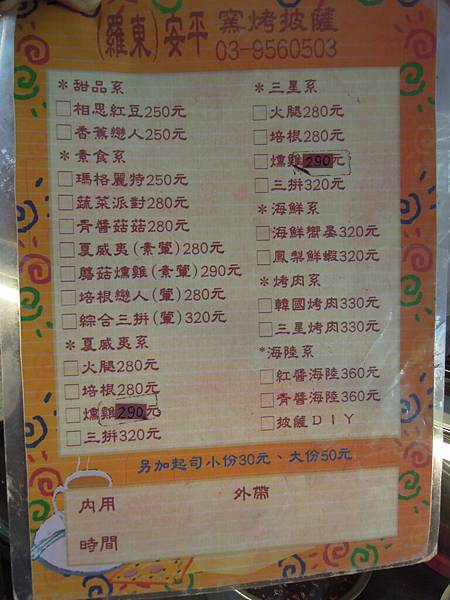 (羅東)安平 窯烤披薩
03-9560503
*甜品系
□相思紅豆250元
□香蕉戀人250元
*素食系
□瑪格麗特250元
□蔬菜派對280元
□青醬菇菇280元
□夏威夷(素葷)280元
□蘑菇燻雞(素葷)290元
□培根戀人(葷)280元
□綜合三拼(葷)320元
*夏威夷系
□火腿280元
□培根280元
□燻雞290元
□三拼320元
*三星系
□火腿280元
□培根280元
□燻雞290元
□三拼320元
*海鮮系
□海鮮嚮宴320元
□鳳梨鮮蝦320元
*烤肉系
□韓國烤肉330元
□三星烤肉330元
*海陸系
□紅醬海陸360元
□青醬海陸360元
□披薩DIY
另加起司小份30元、大份50元
內用 外帶
時間